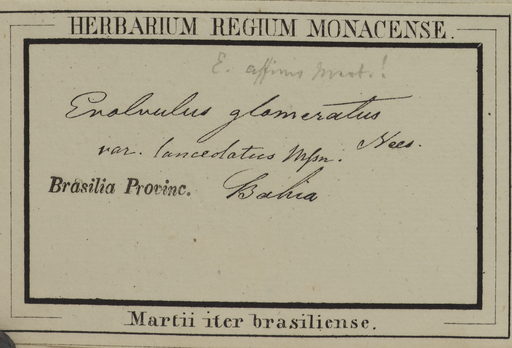 HERBARIUM REGIUM MONACENSE.
E. affinis Mart.!
Evolvulus glomeratus
Nees.
var. lanceolatus Mssn.
Brasilia Provinc. Bahia
Martii iter brasiliense.